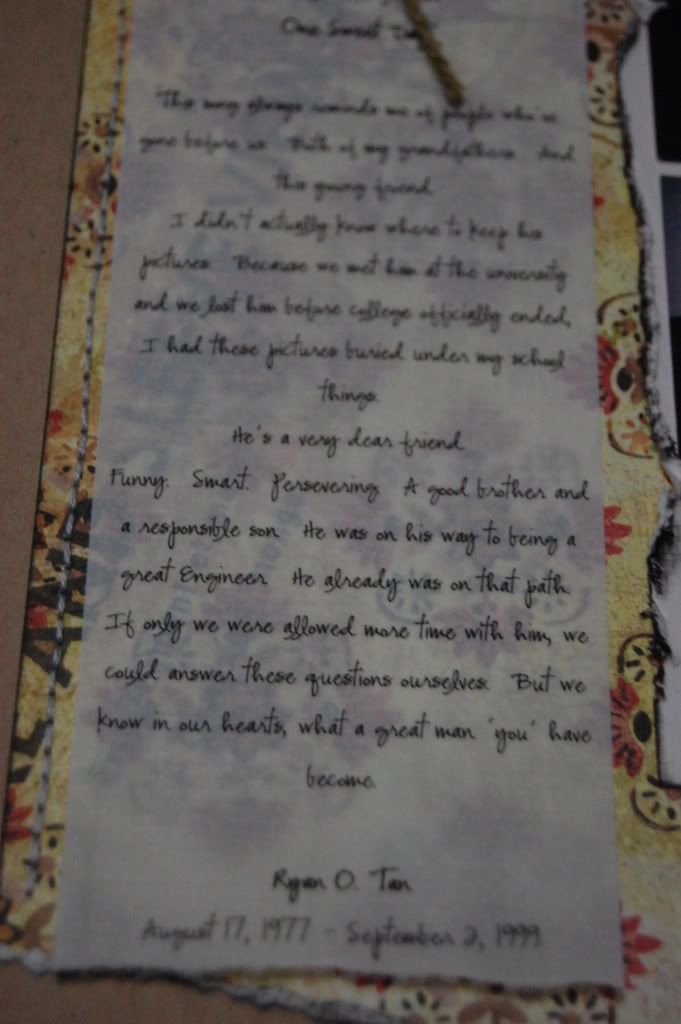 One Sweet Day
This song always reminds me of people who've
gone before us. Both of my grandfathers. And
this young friend.
I didn't actually know where to keep his
pictures. Because we met him at the university
and we lost him before college officially ended,
I had these pictures buried under my school
things.
He's a very dear friend.
Funny. Smart. Persevering. A good brother and
a responsible son. He was on his way to being a
great Engineer. He already was on that path.
If only we were allowed more time with him, we
could answer these questions ourselves. But we
know in our hearts, what a great man 'you' have
become.
Ryan O. Tan
August 17, 1977 - September 2, 1999